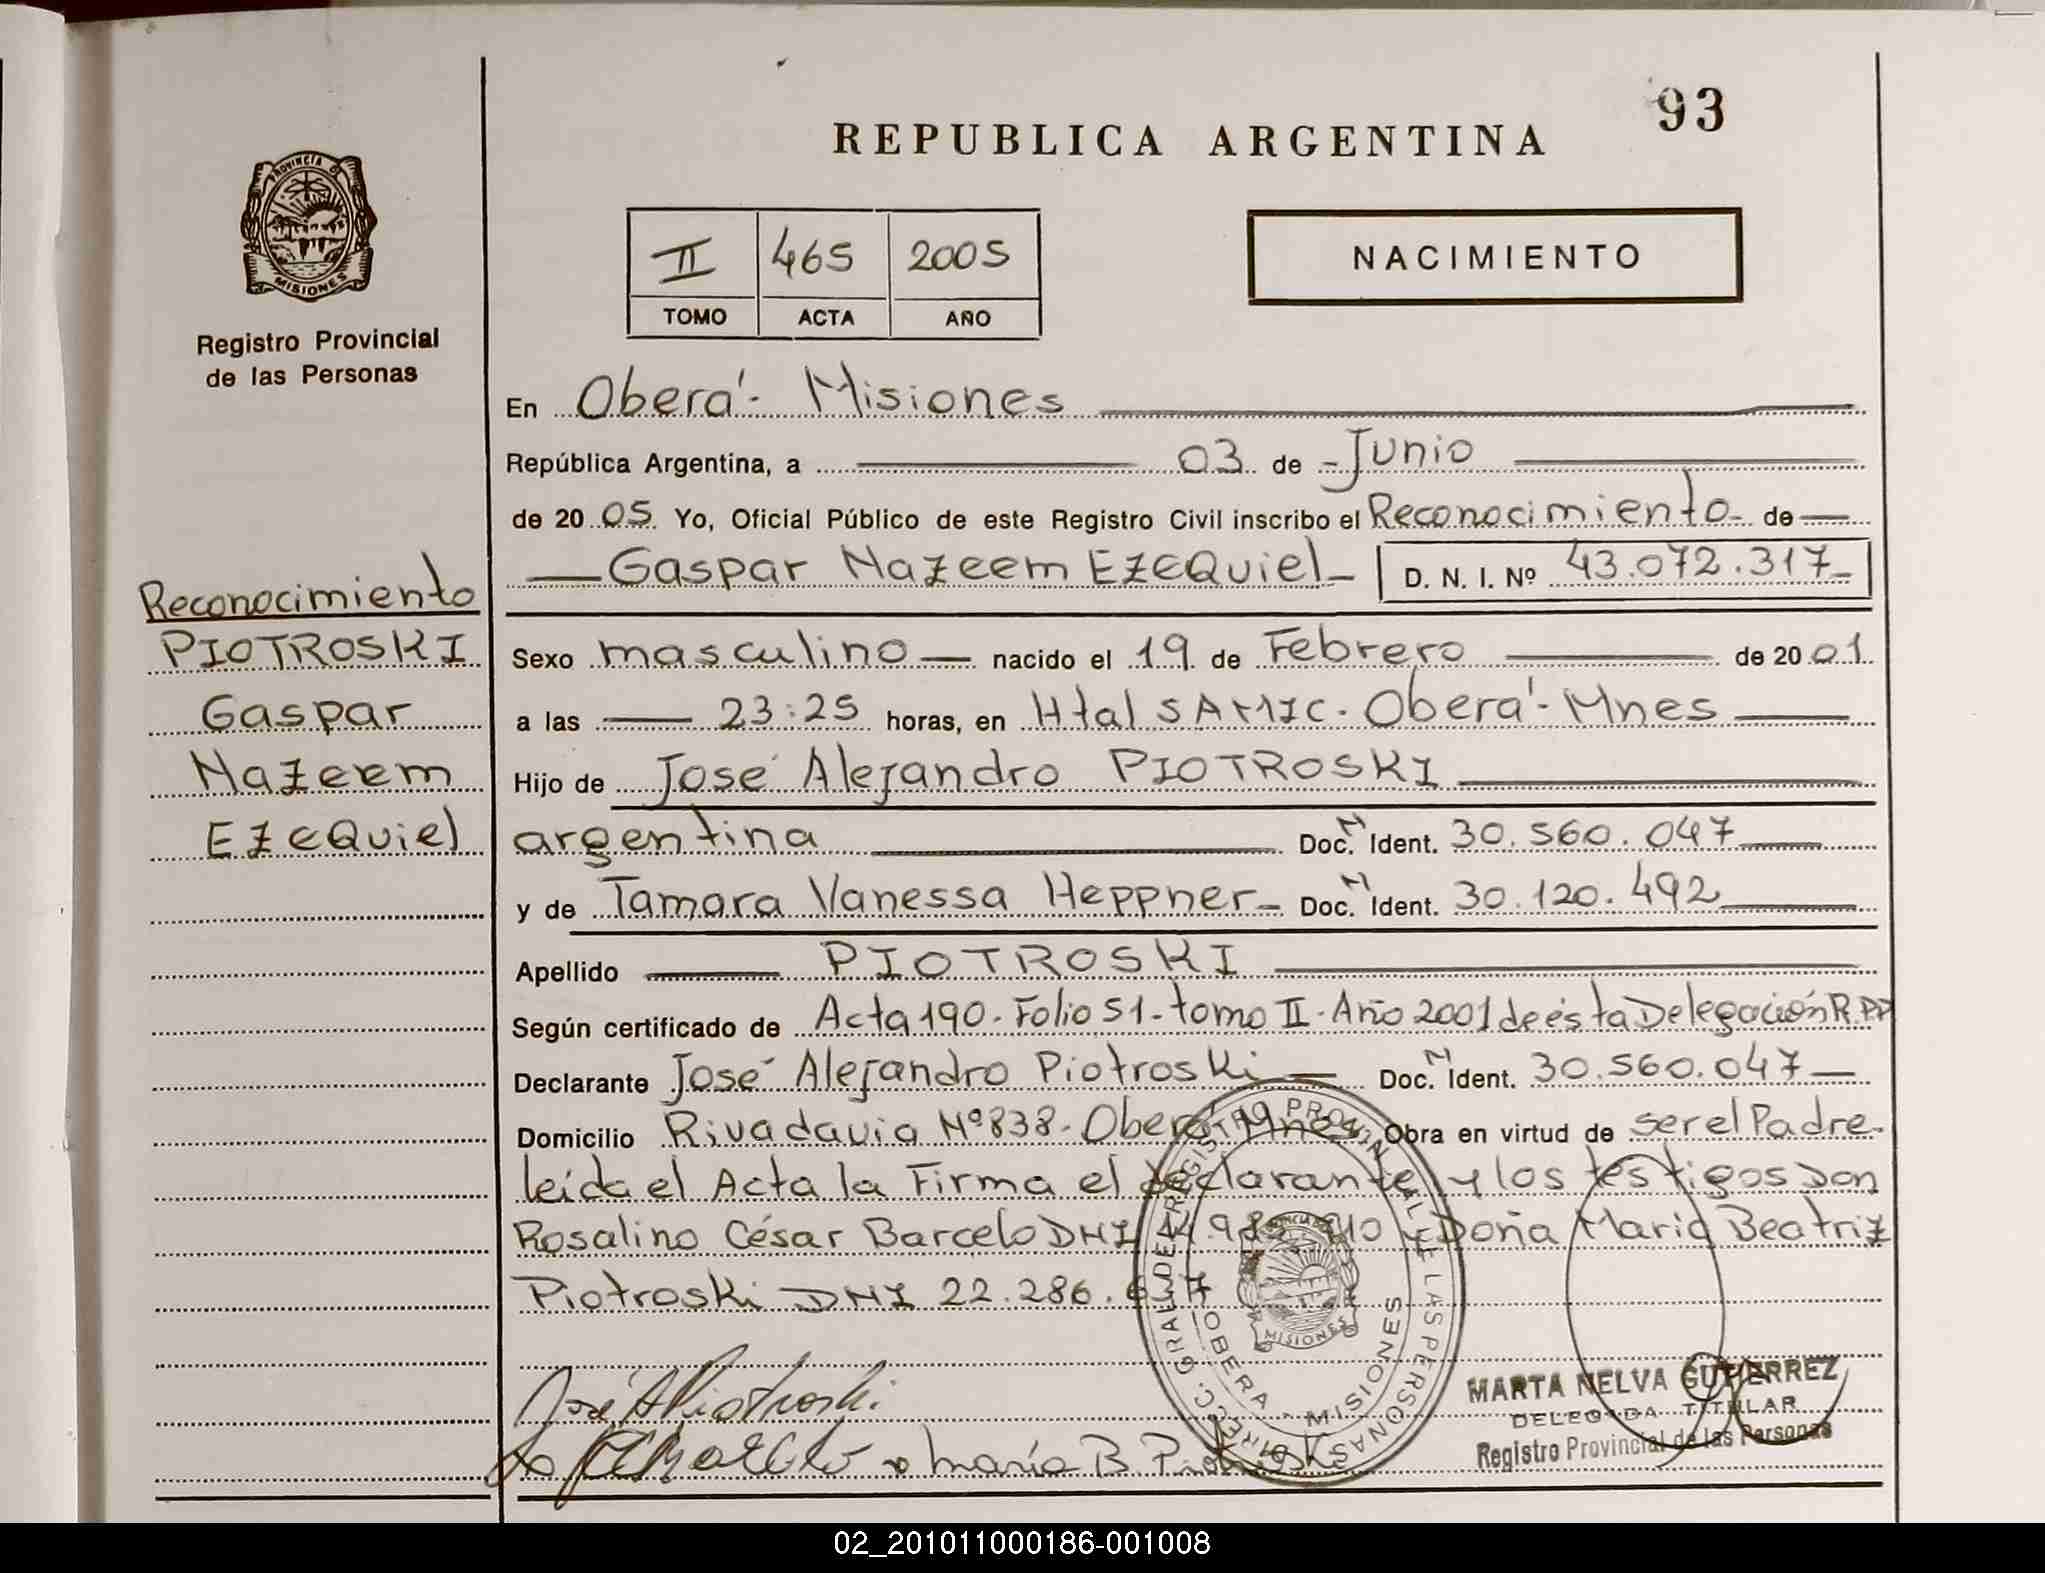 REPUBLICA ARGENTINA
93
PROVINCIA DE
MISIONES
Registro Provincial
de las Personas
II 465 2005
TOMO ACTA AÑO
NACIMIENTO
En Oberá - Misiones
República Argentina, a 03 de Junio
de 2005 Yo, Oficial Público de este Registro Civil inscribo el Reconocimiento de
Gaspar Nazeem EzeQuiel D. N. I. Nº 43.072.317
Reconocimiento
PIOTROSKI
Gaspar
Nazeem
EzeQuiel
Sexo masculino nacido el 19 de Febrero de 2001
a las 23:25 horas, en Htal SAMIC - Oberá - Mnes
Hijo de José Alejandro PIOTROSKI
argentina Doc. N Ident. 30.560.047
y de Tamara Vanessa Heppner Doc. N Ident. 30.120.492
Apellido PIOTROSKI
Según certificado de Acta 190 - Folio 51 - tomo II - Año 2001 de ésta Delegación R.P.P
Declarante José Alejandro Piotroski Doc. N Ident. 30.560.047
Domicilio Rivadavia Nº 838 - Oberá Mnes Obra en virtud de ser el Padre
leída el Acta la Firma el declarante y los testigos Don
Rosalino César Barcelo DNI y Doña Maria Beatriz
Piotroski DNI 22.286.
José A Piotroski
María B. Piotroski
DIRECC. GRAL. DEL REGISTRO PROVINCIAL DE LAS PERSONAS
OBERA - MISIONES
MISIONES
MARTA NELVA GUTIERREZ
DELEGADA TITULAR
Registro Provincial de las Personas
02_201011000186-001008